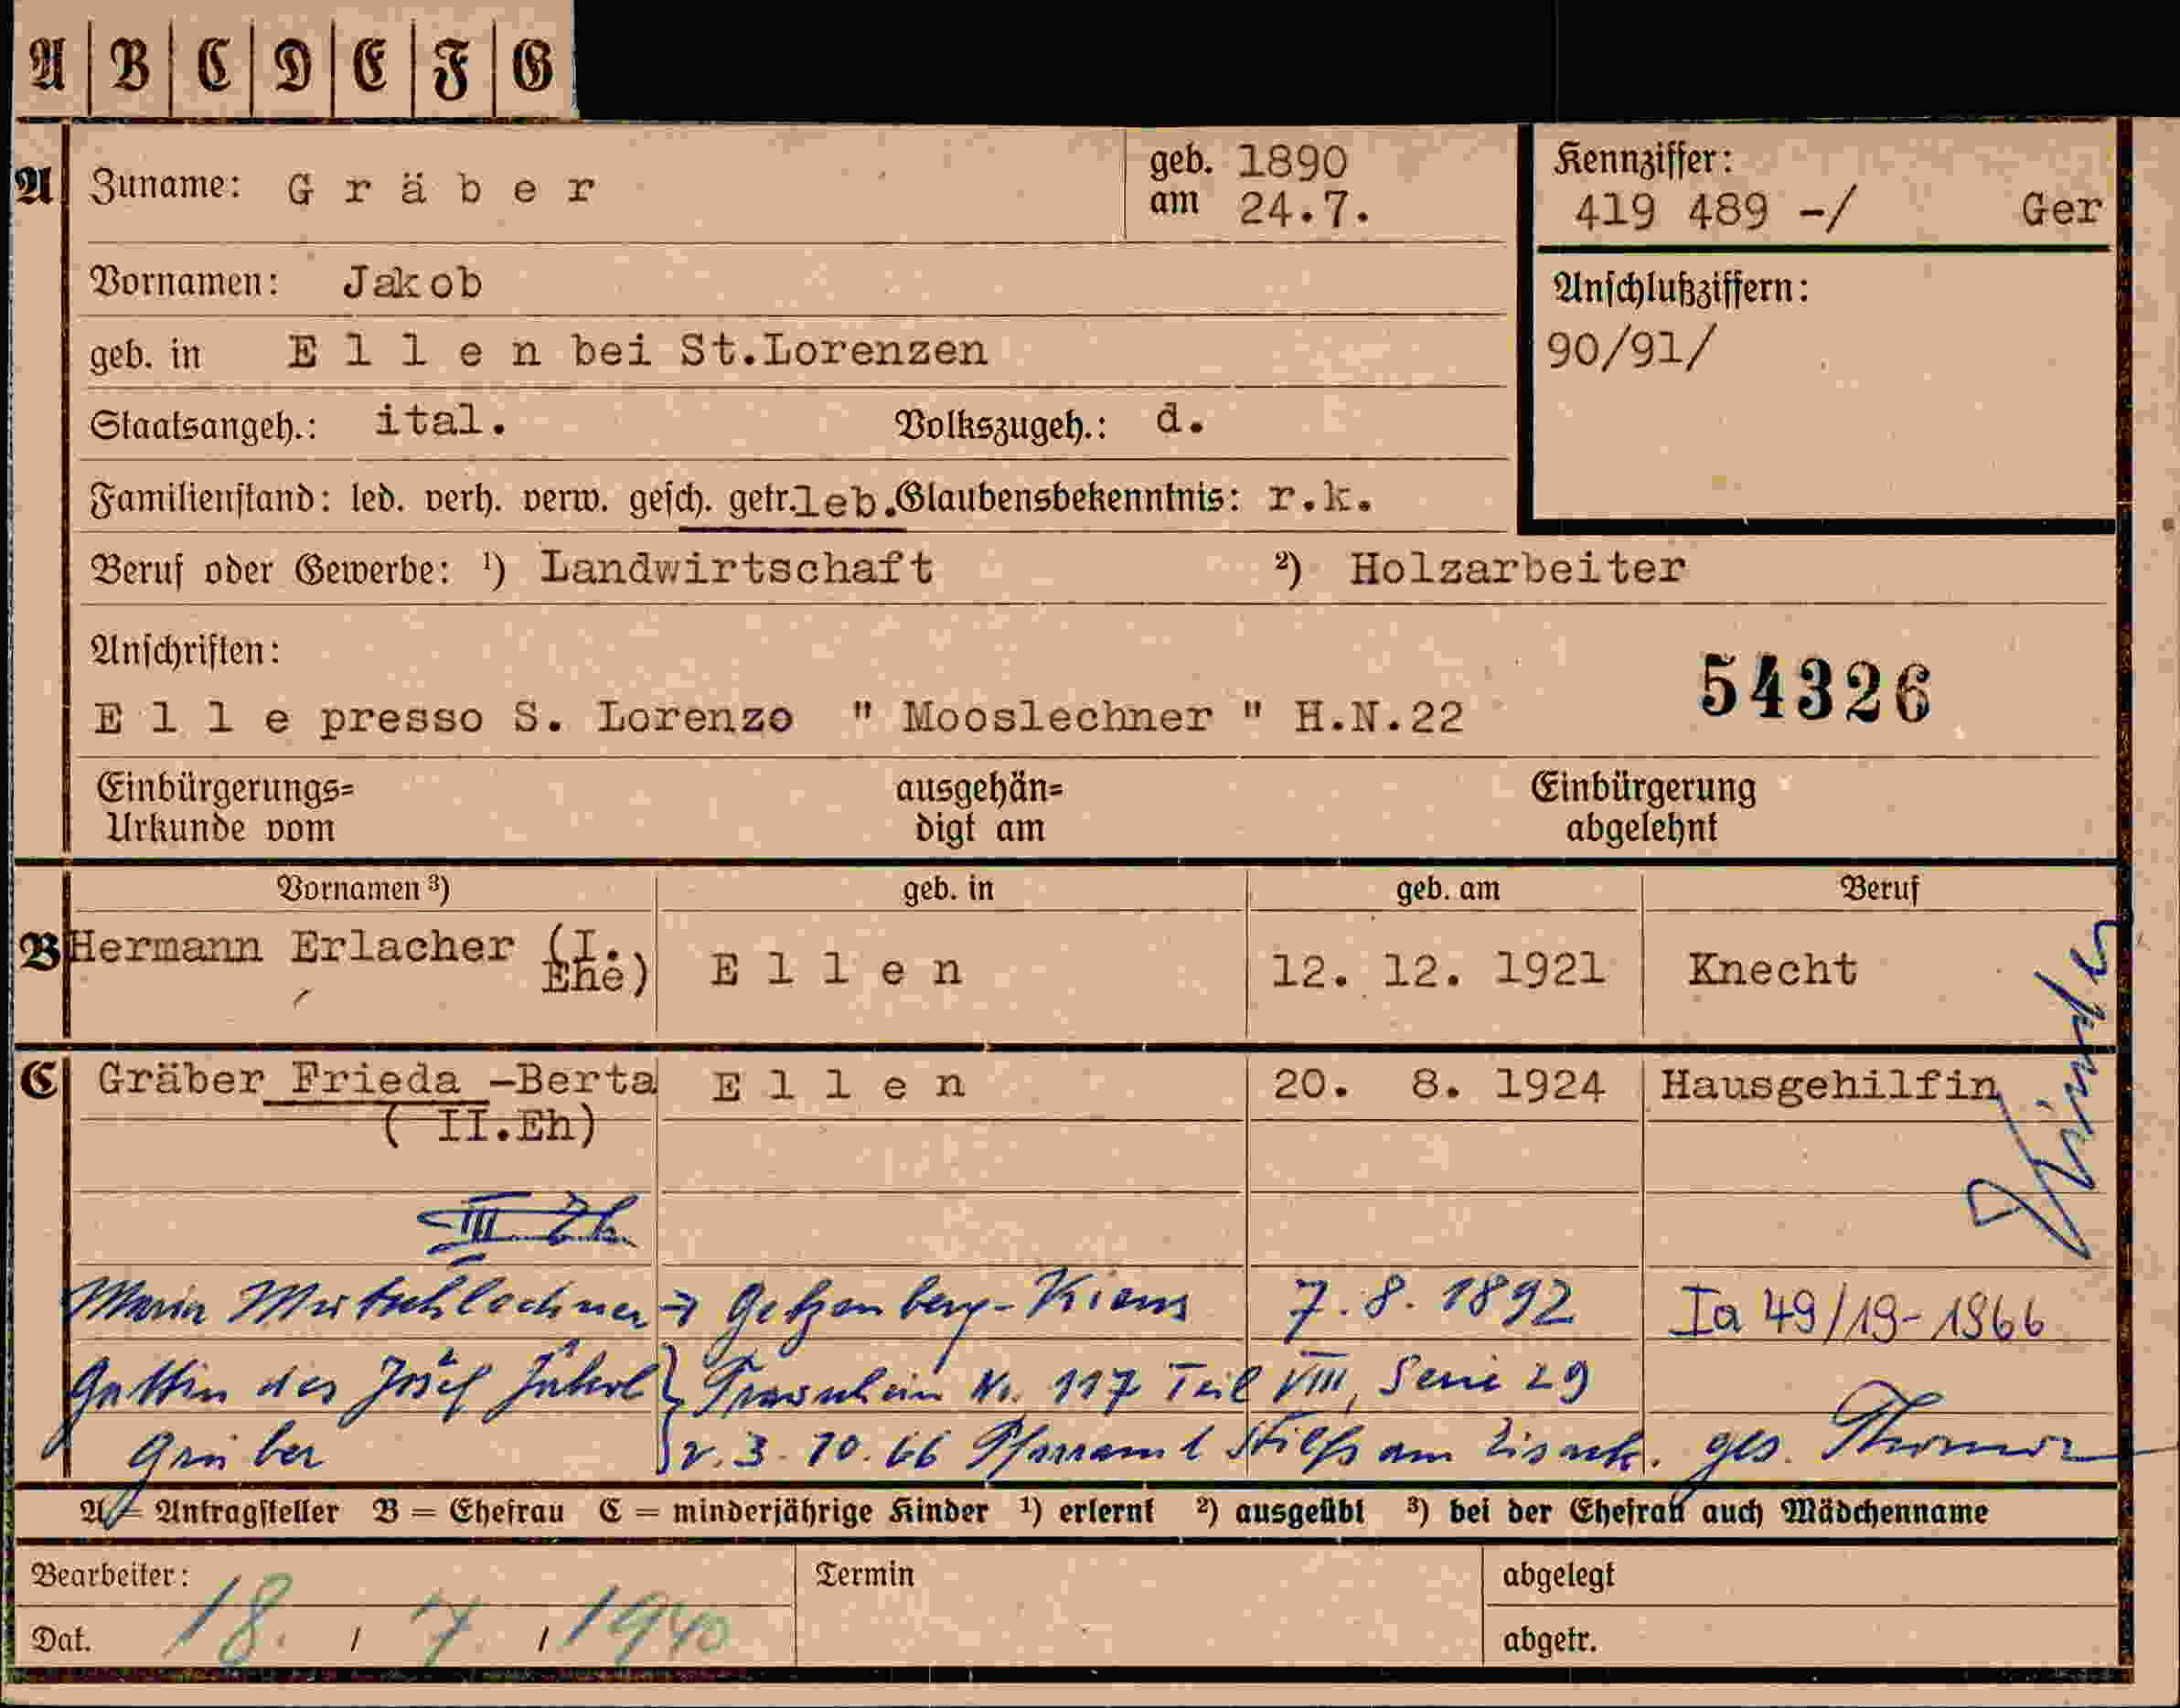 A B C D E F G
A Zuname: Gräber geb. 1890
am 24.7.
Kennziffer:
419 489 -/ Ger
Vornamen: Jakob
Anschlußziffern:
90/91/
geb. in Ellen bei St.Lorenzen
Staatsangeh.: ital. Volkszugeh.: d.
Familienstand: led. verh. verw. gesch. getr.leb. Glaubensbekenntnis: r.k.
Beruf oder Gewerbe: ¹) Landwirtschaft ²) Holzarbeiter
Anschriften:
54326
Elle presso S. Lorenzo " Mooslechner " H.N.22
Einbürgerungs= ausgehän= Einbürgerung
Urkunde vom digt am abgelehnt
Vornamen ³) geb. in geb. am Beruf
B Hermann Erlacher (I. Ehe) Ellen 12. 12. 1921 Knecht
C Gräber Frieda -Berta Ellen 20. 8. 1924 Hausgehilfin
( II.Eh)
III Eh.
Maria Mutschlechner → Getzenberg-Kiens 7.8.1892 Ia 49/19-1966
Gattin des Josef Jakob } Trauschein Nr. 117 Teil VIII, Serie 29
Gräber v. 3.10.66 Pfarramt am Eisack. ges.
A = Antragsteller B = Ehefrau C = minderjährige Kinder ¹) erlernt ²) ausgeübt ³) bei der Ehefrau auch Mädchenname
Bearbeiter: Termin abgelegt
Dat. 18. / 7 / 1940 abgetr.